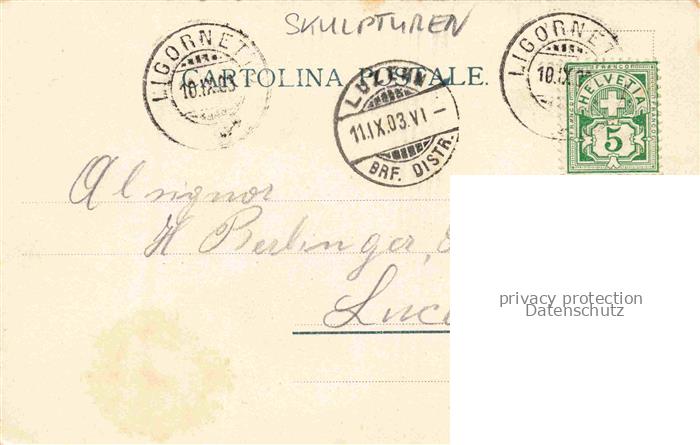 SKULPTUREN
LIGORNET
10.IX.03
LIGORNET
10.IX
CARTOLINA POSTALE.
LUZERN
11.IX.03.VI–
BRF. DISTR.
FRANCO
HELVETIA
FRANCO
FRANCO
5
Al signor
H Berlinger,
Luc
privacy protection
Datenschutz